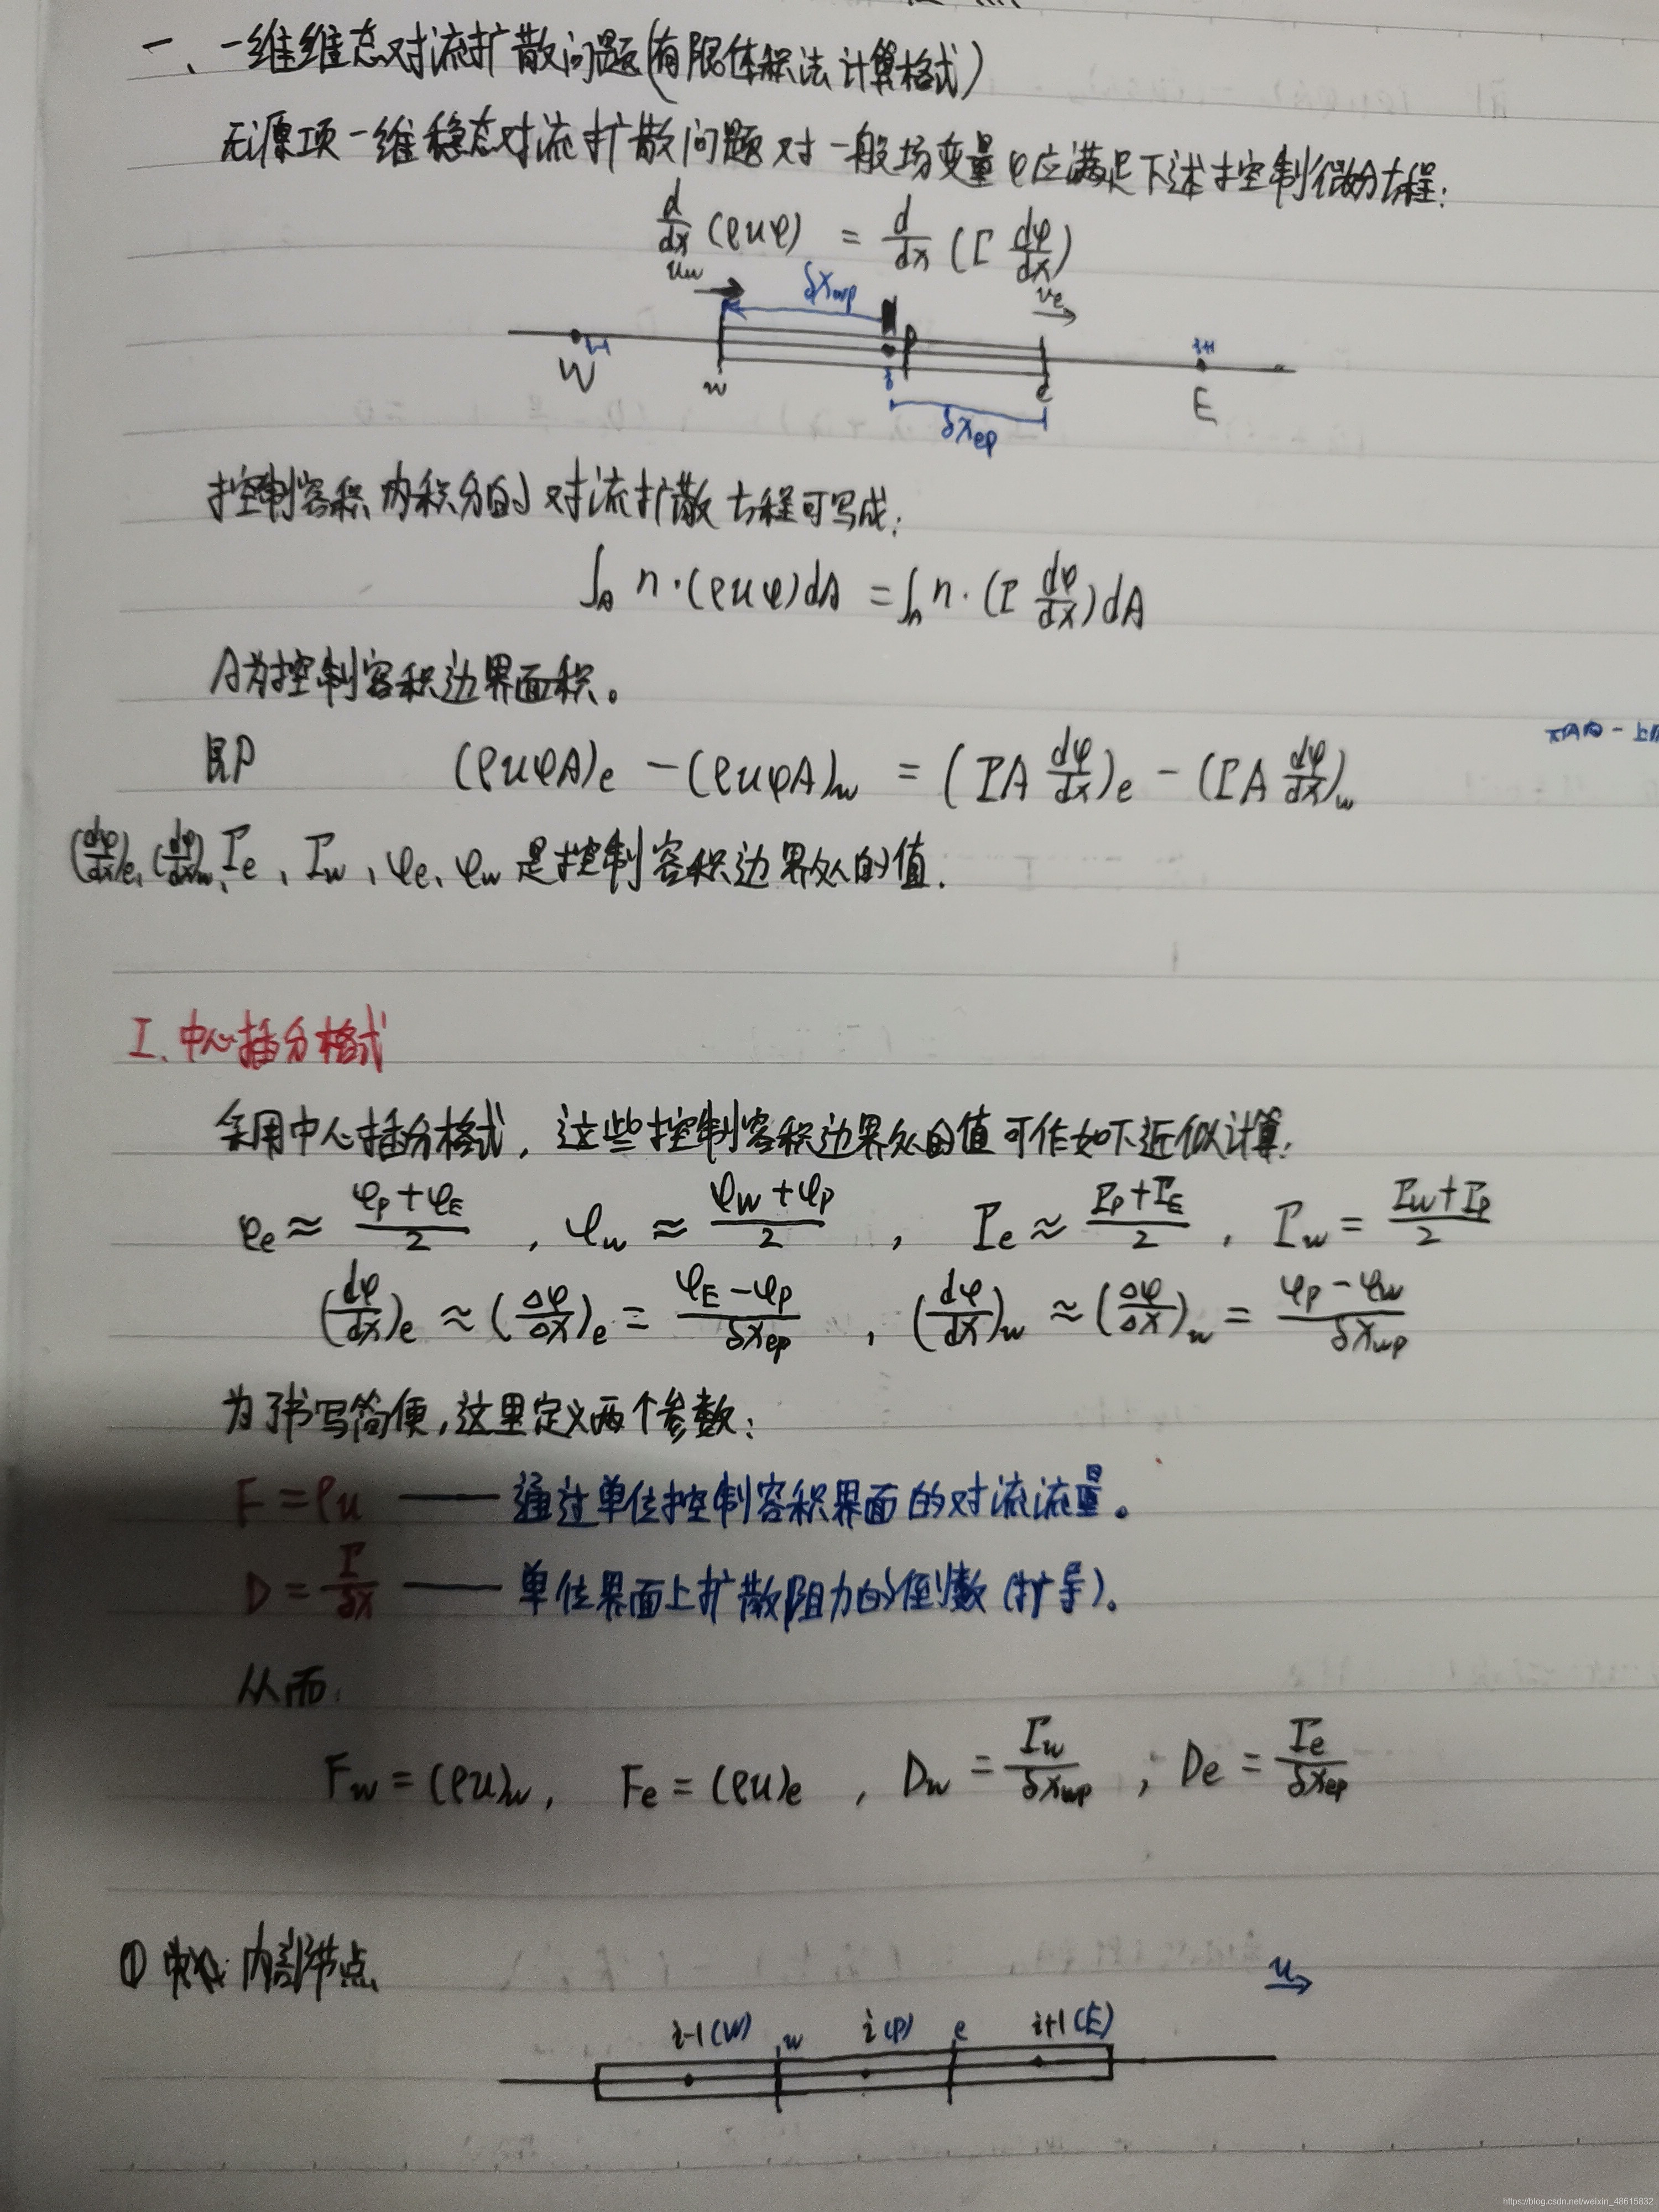 一、一维维态对流扩散问题(有限体积法计算格式)
无源项一维稳态对流扩散问题对一般场变量φ应满足下述控制微分方程:
d/dx (ρuφ) = d/dx (Γ dφ/dx)
u_w δx_wp v_e
W i-1 w P i e i+1 E
δx_ep
控制容积内积分的对流扩散方程可写成:
∫_A n·(ρuφ)dA = ∫_A n·(Γ dφ/dx)dA
A为控制容积边界面积。
即 (ρuφA)_e - (ρuφA)_w = (ΓA dφ/dx)_e - (ΓA dφ/dx)_w
(dφ/dx)_e、(dφ/dx)_w、Γ_e、Γ_w、φ_e、φ_w是控制容积边界处的值.
I.中心插分格式
采用中心插分格式,这些控制容积边界处的值可作如下近似计算:
φ_e ≈ (φ_P+φ_E)/2 , φ_w ≈ (φ_W+φ_P)/2 , Γ_e ≈ (Γ_P+Γ_E)/2 , Γ_w = (Γ_W+Γ_P)/2
(dφ/dx)_e ≈ (Δφ/Δx)_e = (φ_E-φ_P)/δx_ep , (dφ/dx)_w ≈ (Δφ/Δx)_w = (φ_P-φ_W)/δx_wp
为了书写简便,这里定义两个参数:
F=ρu —— 通过单位控制容积界面的对流流量。
D=Γ/δx —— 单位界面上扩散阻力的倒数(扩导)。
从而:
F_w=(ρu)_w, F_e=(ρu)_e , D_w=Γ_w/δx_wp ; D_e=Γ_e/δx_ep
① 内部节点
u
i-1(W) w i(P) e i+1(E)
https://blog.csdn.net/weixin_48615832